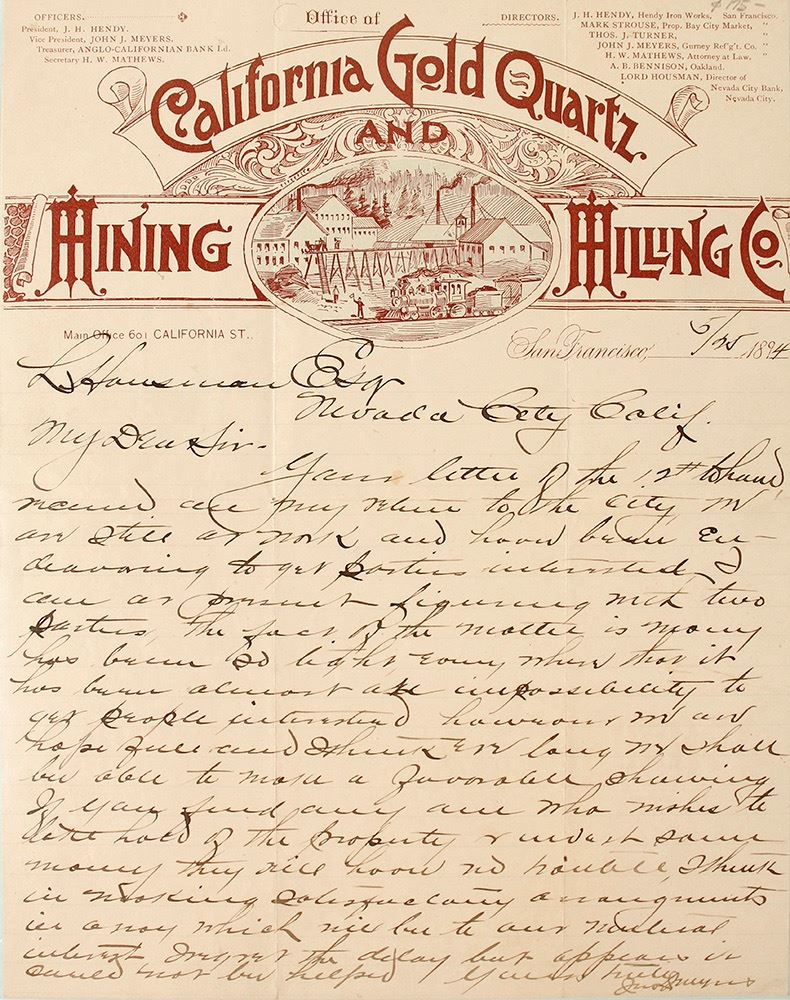 $175-
OFFICERS.
President, J. H. HENDY.
Vice President, JOHN J. MEYERS.
Treasurer, ANGLO-CALIFORNIAN BANK Ld.
Secretary H. W. MATHEWS.
Office of
DIRECTORS.
J. H. HENDY, Hendy Iron Works, San Francisco.
MARK STROUSE, Prop. Bay City Market, "
THOS. J. TURNER, "
JOHN J. MEYERS, Gurney Ref'g't. Co. "
H. W. MATHEWS, Attorney at Law, "
A. B. BENNISON, Oakland.
LORD HOUSMAN, Director of
Nevada City Bank,
Nevada City.
California Gold Quartz
AND
MINING MILLING Co
Main Office 601 CALIFORNIA ST..
San Francisco, 5/25 1894
L Housman Esq
Nevada City Calif.
My Dear Sir-
Your letter of the 12th to hand
received on my return to the city We
are still at work and have been En-
deavoring to get parties interested I
am at present figuring with two
parties, The fact of the matter is money
has been so tight every where that it
has been almost an impossibility to
get people interested however we are
hope full and I think ere long we shall
be able to make a favorable showing
If you find any one who wishes to
take hold of the property & invest some
money they will have no trouble, I think
in making satisfactory arrangments
in a way which will be to our mutual
interest I regret the delay but appears it
could not be helped Yours truly
Jno J Meyers